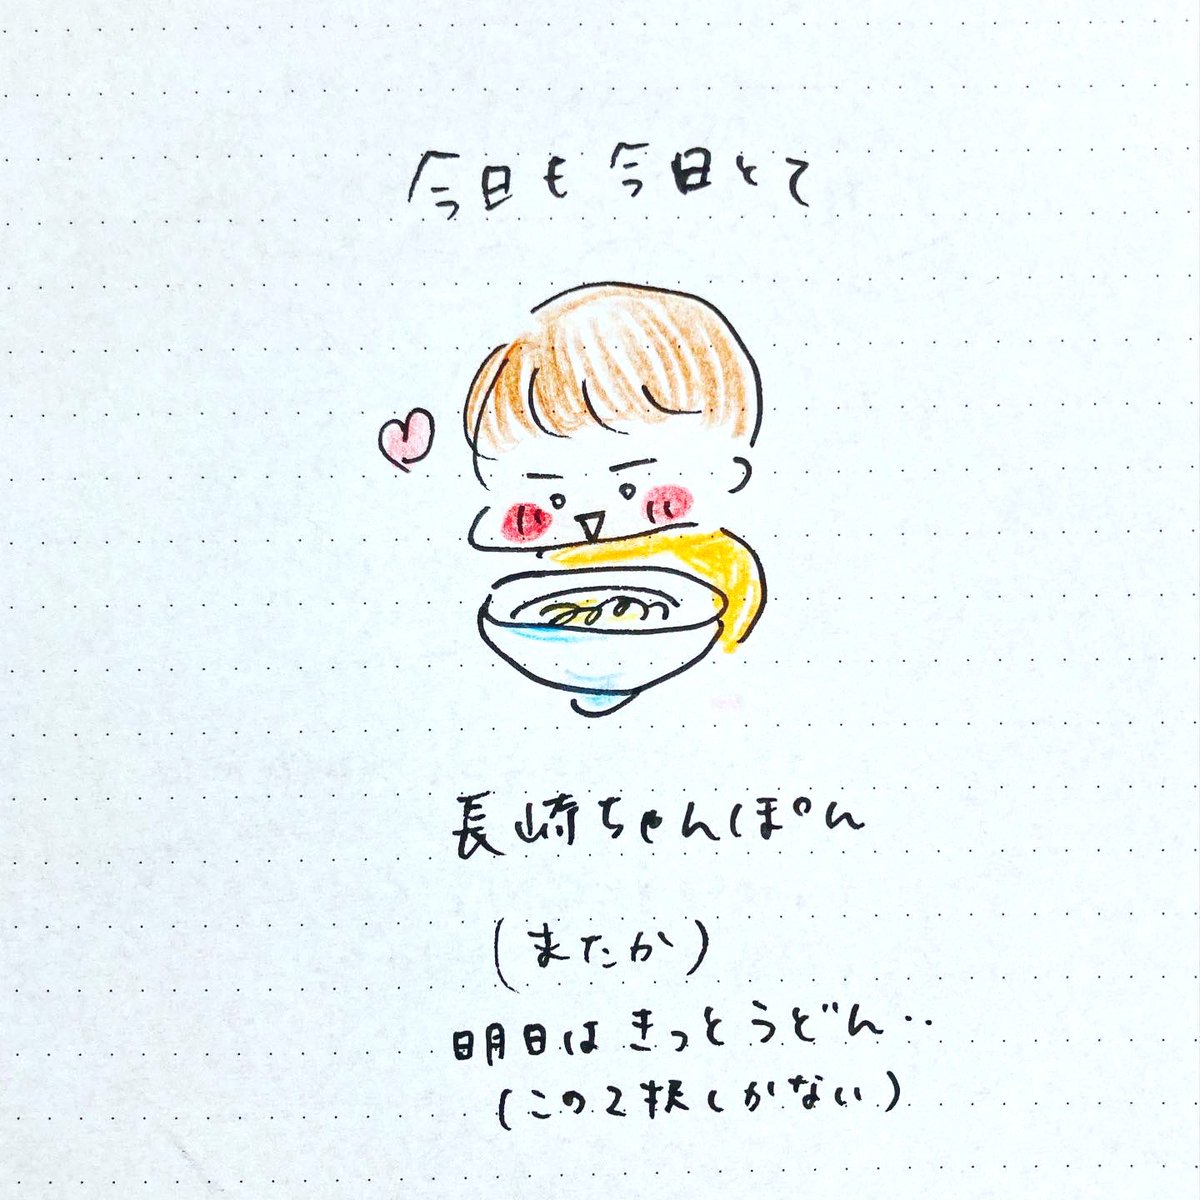 今日も今日とて
長崎ちゃんぽん
(またか)
明日はきっとうどん‥
(この2択しかない)